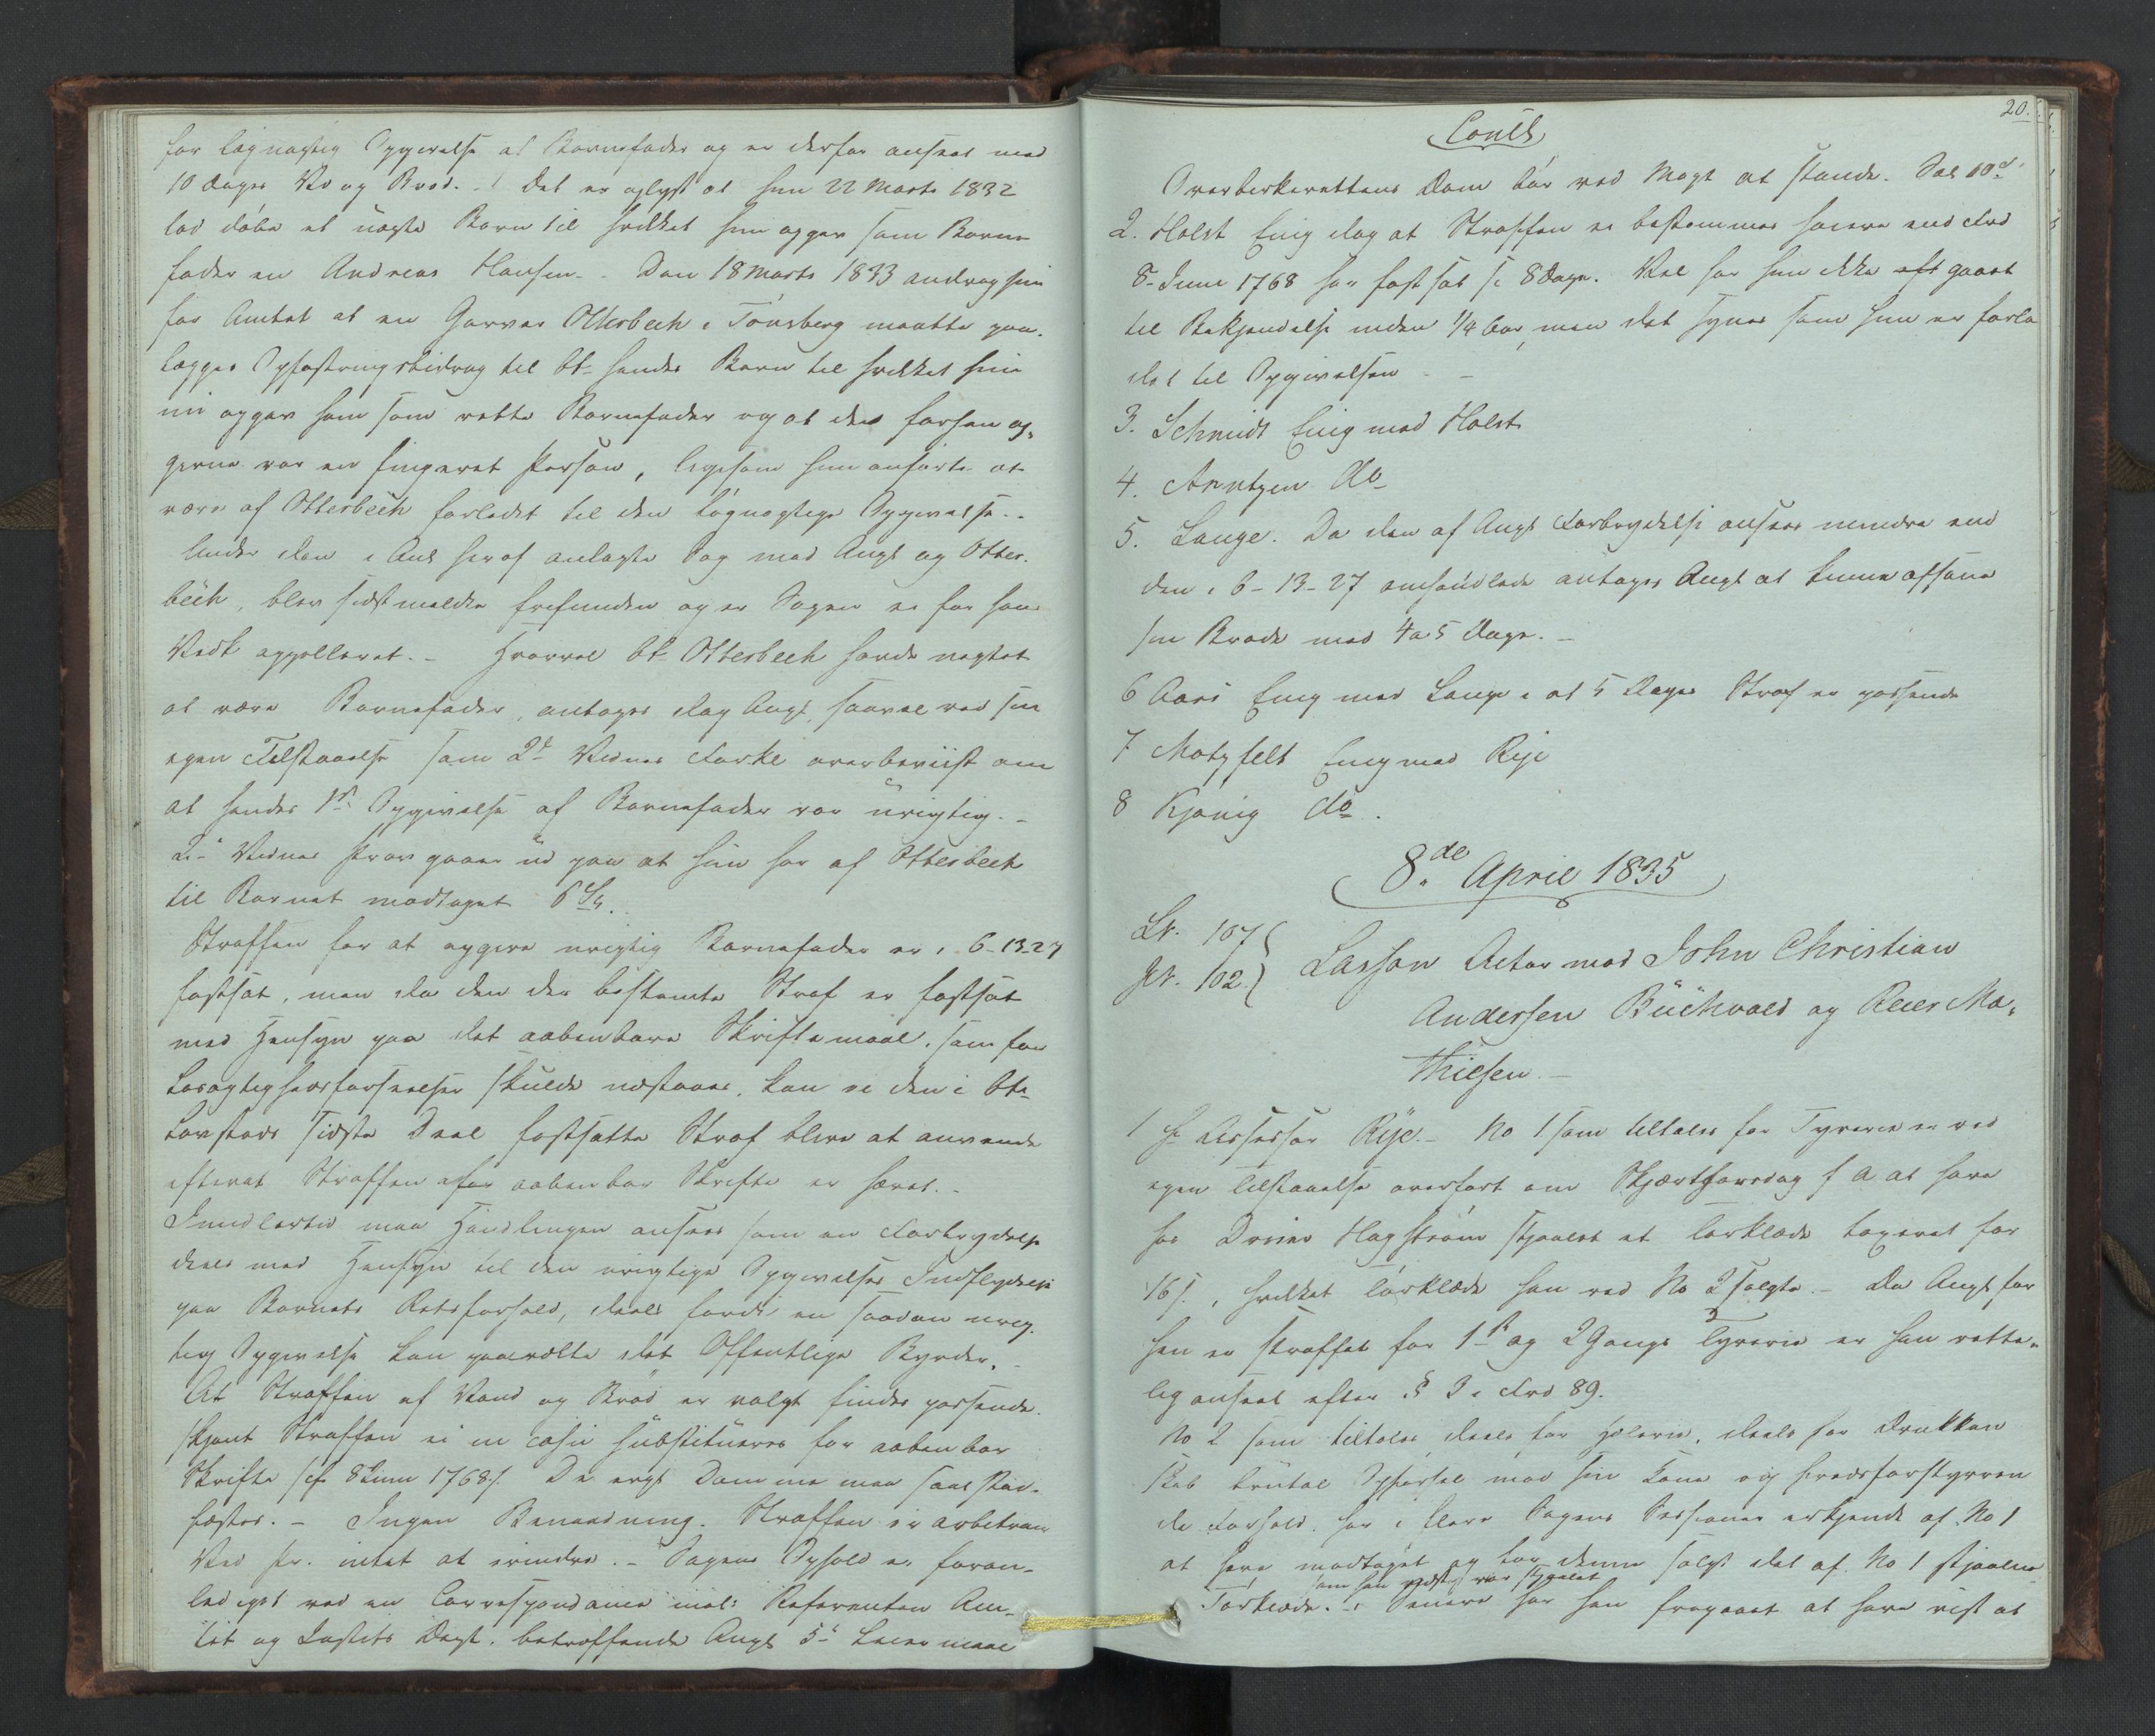 for løgnagtig Opgivelse af Barnefader og er derfor anseet med
10 Dages Vd og Brød. - Det er oplyst at hun 22 Marts 1832
lod døbe et uægte Barn til hvilket hun opgav som Barne
fader en Andreas Hansen. - Den 18 Marts 1833 androg hun
for Amtet at en Garver Otterbech i Tønsberg maatte paa-
lægges Opfostringsbidrag til bte hendes Barn til hvilket hun
nu opgav ham som rette Barnefader og at den forhen op-
givne var en fingeret Person, ligesom hun anførte at
være af Otterbech forledet til den løgnagtige Opgivelse. -
Under den i Anl heraf anlagte Sag mod Angl og Otter-
bech, blev sidstmeldte frifunden og er Sagen ei for hans
Vedk appelleret. - Hvorvel bte Otterbech havde negtet
at være Barnefader, antages dog Angl, saavel ved sin
egen Tilstaaelse som 2de Vidners Forkl overbeviist om
at hendes 1ste Opgivelse af Barnefader var urigtig. -
2de Vidners Prov gaaer ud paa at hun har af Otterbech
til Barnet modtaget 6
Straffen for at opgive urigtig Barnefader er i 6-13-27
fastsat, men da den der bestemte Straf er fastsat
med Hensyn paa det aabenbare Skriftemaal, som for
Løsagtighedsforseelser skulde udstaaes, kan ei den i bte
Lovsteds sidste Deel fastsatte Straf blive at anvende
efterat Straffen for aabenbar Skrifte er hævet. -
Imidlertid maa Handlingen ansees som en Forbrydelse
deels med Hensyn til den urigtige Opgivelses Indflydelse
paa Barnets Retsforhold, deels fordi en saadan urig-
tig Opgivelse kan paavælte det Offentlige Byrder. -
At Straffen af Vand og Brød er valgt findes passende.
skjønt Straffen ei in casu substitueres for aabenbar
Skrifte cfr 8 Juni 1768. De Domme maa saal stad-
fæstes. - Ingen Benaadning. Straffen er arbitrair
Ved Pr. intet at erindre. - Sagens Ophold er foran-
lediget ved en Correspondance mel: Referenten Am-
tet og Justits Dept. betræffende Angls 5te Leiermaal
20.
Concl
Overberkerettens Dom bør ved Magt at stande. Sal 10 d
2. Holst Enig dog at Straffen ei bestemmes høiere end Frd
8 Juni 1768 har fastsat : 8 Dage. Vel har hun ikke gaaet
til Bekjendelse inden 1/4 Aar, men det synes som hun er forle
det til Opgivelsen - -
3. Schmidt Enig med Holst
4. Arntzen do
5. Lange. Da den af Angl Forbrydelse ansees mindre end
den i 6-13-27 omhandlede antages Angl at kunne afsone
sin Brøde med 4 a 5 Dage. -
6 Aars Enig med Lange i at 5 Dages Straf er passende
7 Motzfelt Enig med Rije
8 Kjønig do.
8de April 1835
Lr. 107
Jr. 102
Lasson Actor mod John Christian
Andersen Büchvald og Reier Ma-
thiesen. -
1 Hr Assessor Rije. - No 1 som tiltales for Tyverie er ved
egen Tilstaaelse overført om Skjærthorsdag f A at have
hos Hagstrøm stjaalet et Tørklæde taxeret for
16 s., hvilket Tørklæde han ved No 2 solgte. - Da Angl for
hen er straffet for 1ste og 2 Gangs Tyverie er han rette-
lig anseet efter § 3 i Frd 89.
No 2 som tiltales deels for Hæleri, deels for Drukken
skab brutal Opførsel mod sin Kone og fredsforstyrren
de Forhold. har i flere Sagens Sessioner erkjendt af No 1
at have modtaget og for denne solgt det af No 1 stjaalne
som han vidste var stjaalet
Tørklæde. - Senere har han fragaaet at have vist at